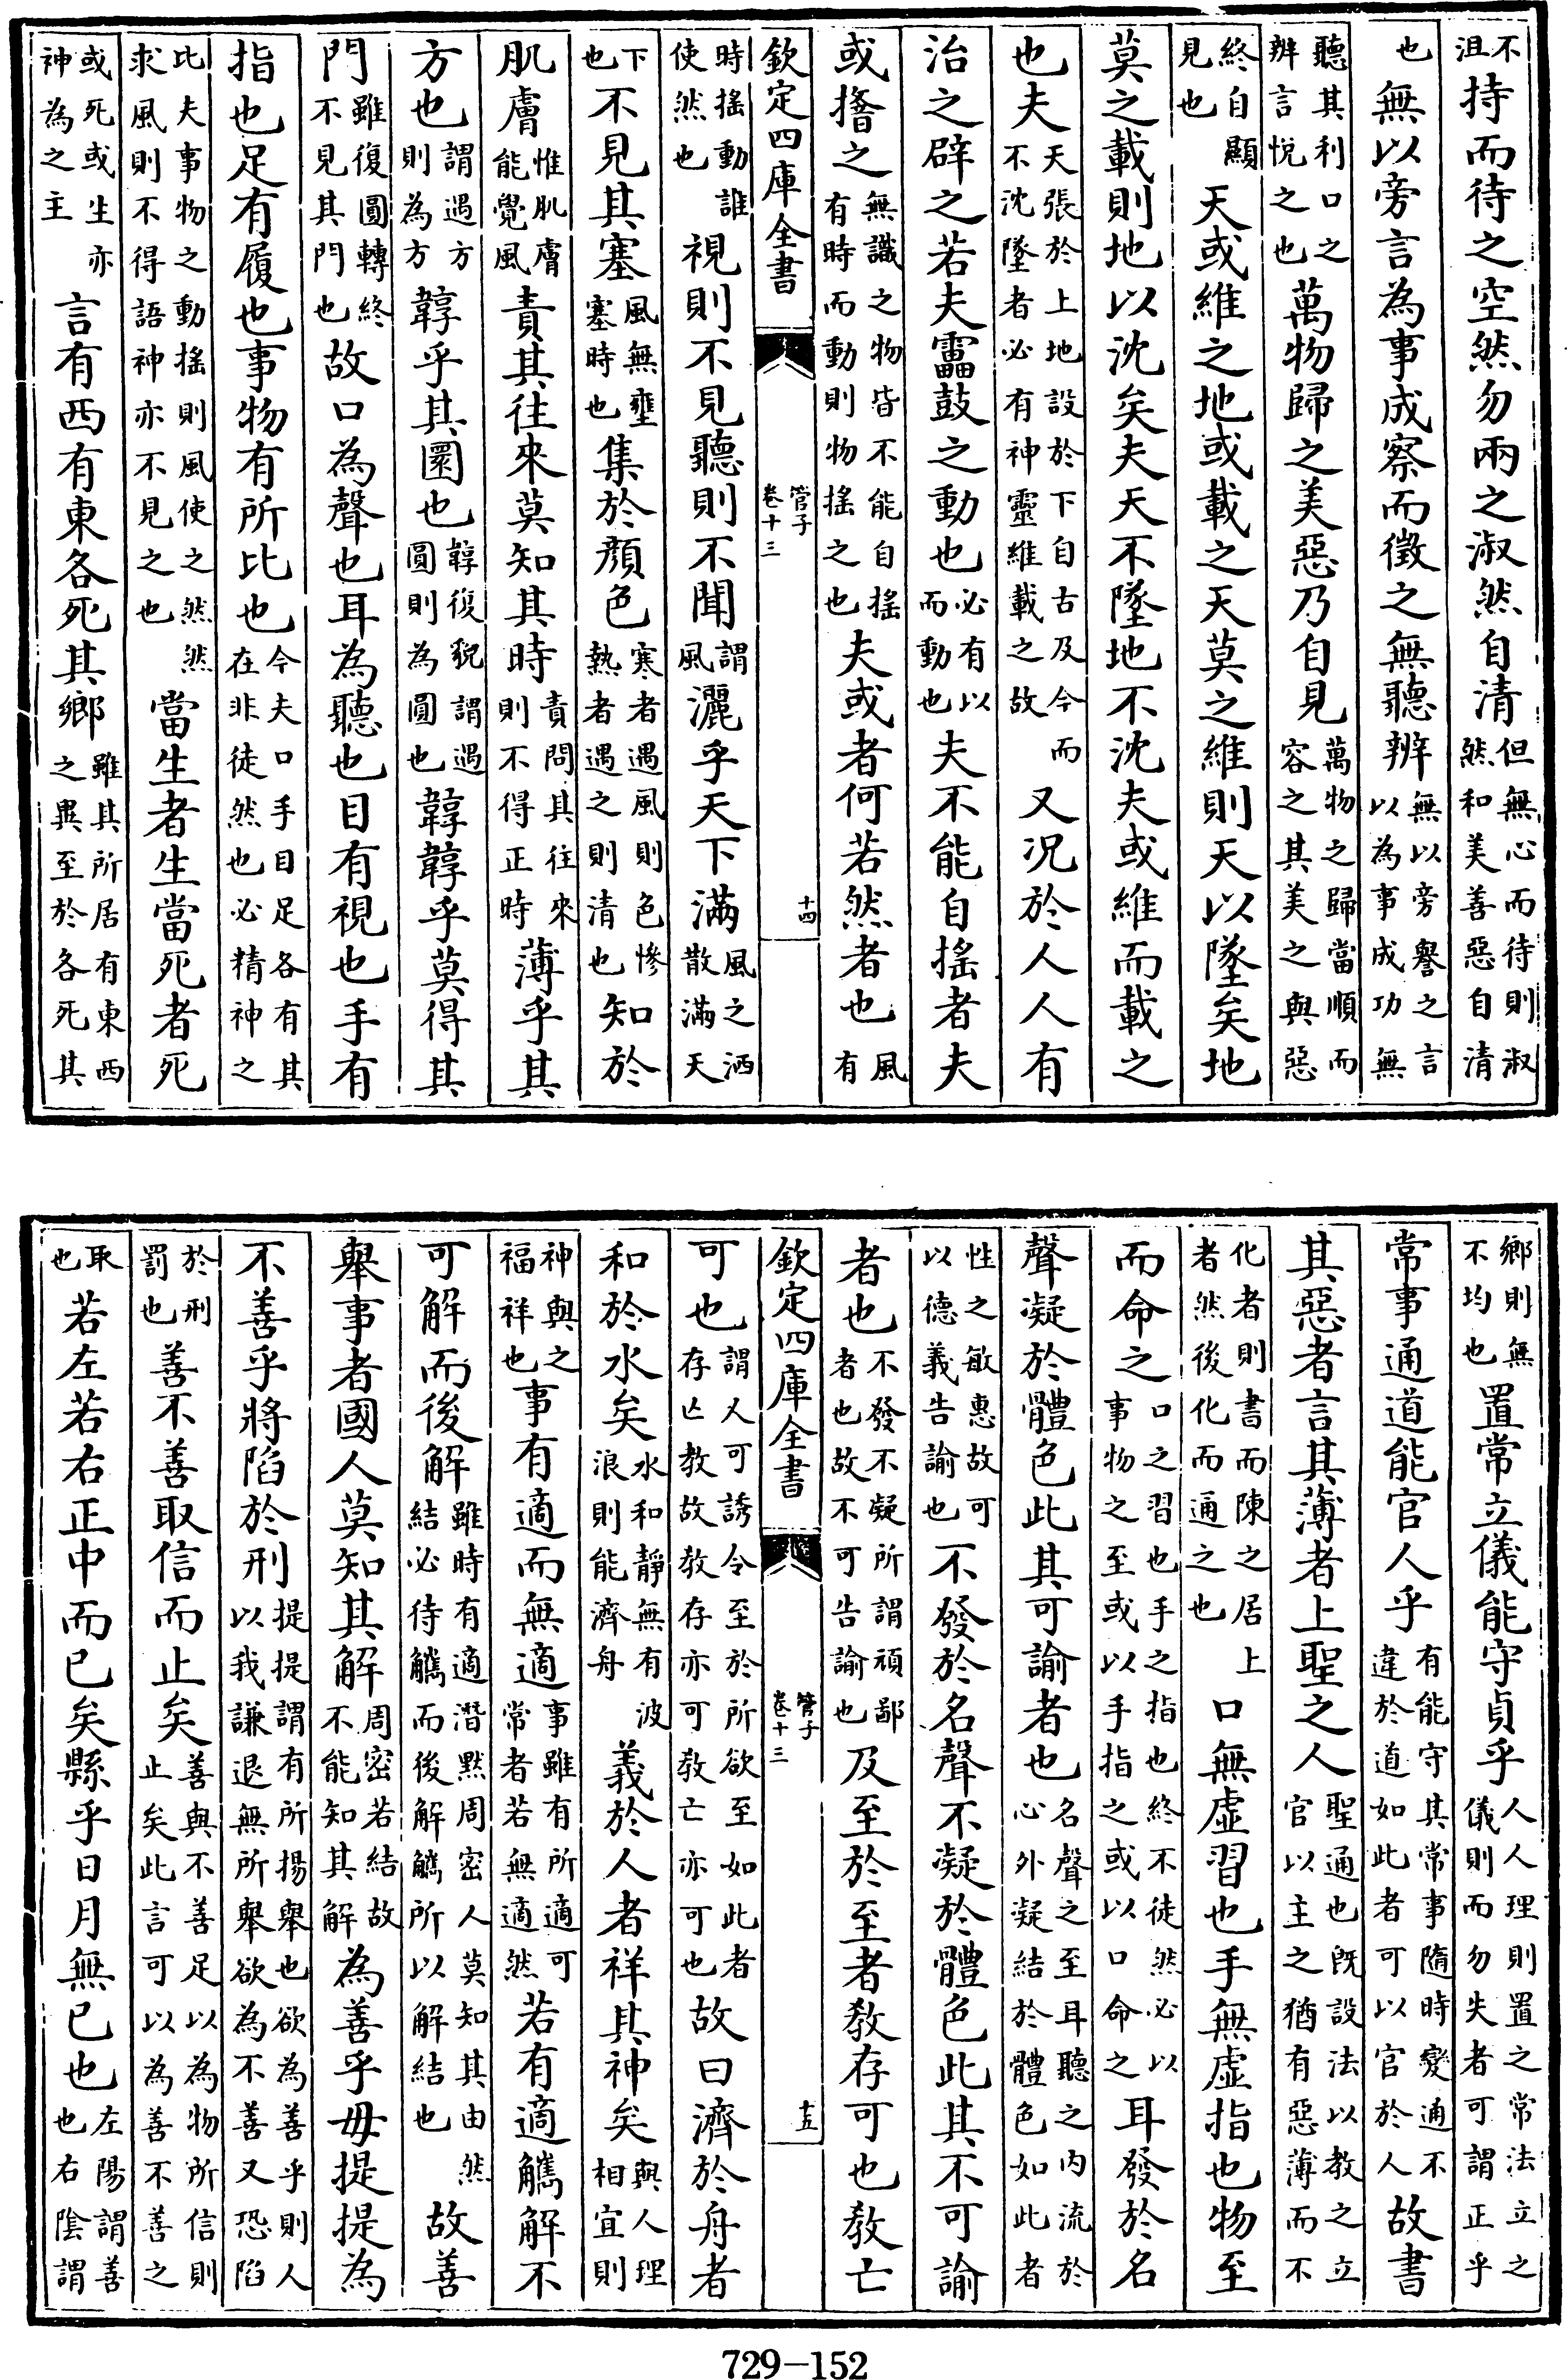 不沮持而待之空然勿兩之淑然自清但無心而待則淑然和美善惡自清
也無以旁言為事成察而徵之無聽辨無以旁譽之言以為事成功無
聽其利口之辨言悅之也萬物歸之美惡乃自見萬物之歸當順而容之其美之與惡
終自顯見也天或維之地或載之天莫之維則天以墜矣地
莫之載則地以沈矣夫天不墜地不沈夫或維而載之
也夫天張於上地設於下自古及今而不沈墜者必有神靈維載之故又況於人人有
治之辟之若夫靁鼓之動也必有以而動也夫不能自搖者夫
或搚之無識之物皆不能自搖有時而動則物搖之也夫或者何若然者也風有
欽定四庫全書 管子卷十三 十四
時搖動誰使然也視則不見聽則不聞謂風灑乎天下滿風之洒散滿天
下也不見其塞風無壅塞時也集於顏色寒者遇風則色慘熱者遇之則清也知於
肌膚惟肌膚能覺風責其往來莫知其時責問其往來則不得正時薄乎其
方也謂遇方則為方韕乎其圜也韕復貌謂遇圓則為圓也韕韕乎莫得其
門雖復圓轉終不見其門也故口為聲也耳為聽也目有視也手有
指也足有履也事物有所比也今夫口手目足各有其在非徒然也必精神之
比夫事物之動搖則風使之然然求風則不得語神亦不見之也當生者生當死者死
或死或生亦神為之主言有西有東各死其鄉雖其所居有東西之異至於各死其
鄉則無不均也置常立儀能守貞乎人人理則置之常法立之儀則而勿失者可謂正乎
常事通道能官人乎有能守其常事隨時變通不違於道如此者可以官於人故書
其惡者言其薄者上聖之人聖通也既設法以教之立官以主之猶有惡薄而不
化者則書而陳之居上者然後化而通之也口無虛習也手無虛指也物至
而命之口之習也手之指也終不徒然必以事物之至或以手指之或以口命之耳發於名
聲凝於體色此其可諭者也名聲之至耳聽之內流於心外凝結於體色如此者
性之敏惠故可以德義告諭也不發於名聲不凝於體色此其不可諭
者也不發不凝所謂頑鄙者也故不可告諭也及至於至者教存可也教亡
欽定四庫全書 管子卷十三 十五
可也謂人可誘令至於所欲至如此者存亡教故教存亦可教亡亦可也故曰濟於舟者
和於水矣水和靜無有波浪則能濟舟義於人者祥其神矣與人理相宜則
神與之福祥也事有適而無適事雖有所適可常者若無適然若有適觿解不
可解而後解雖時有適潛默周密人莫知其由然結必待觿而後解觿所以解結也故善
舉事者國人莫知其解周密若結故不能知其解為善乎毋提提為
不善乎將陷於刑提提謂有所揚舉也欲為善乎則人以我謙退無所舉欲為不善又恐陷
於刑罰也善不善取信而止矣善與不善足以為物所信則止矣此言可以為善不善之
取也若左若右正中而已矣縣乎日月無已也左陽謂善也右陰謂
729-152